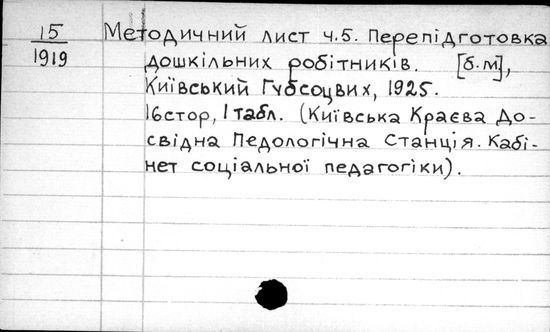 15
1919
Методичний лист ч.5. Перепідготовка
дошкільних робітників. [б.м],
Київський Губсоцвих, 1925.
16стор, 1 табл. (Київська Краєва До-
свідна Педологічна Станція. Кабі-
нет соціальної педагогіки).